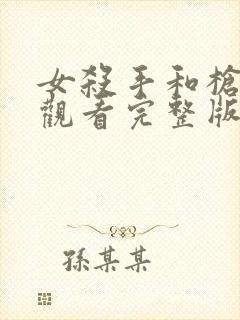 女殺手和槍
觀看完整版
孫某某